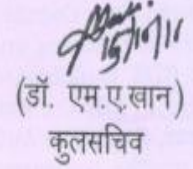 15/10/11
(डॉ. एम.ए.खान)
कुलसचिव